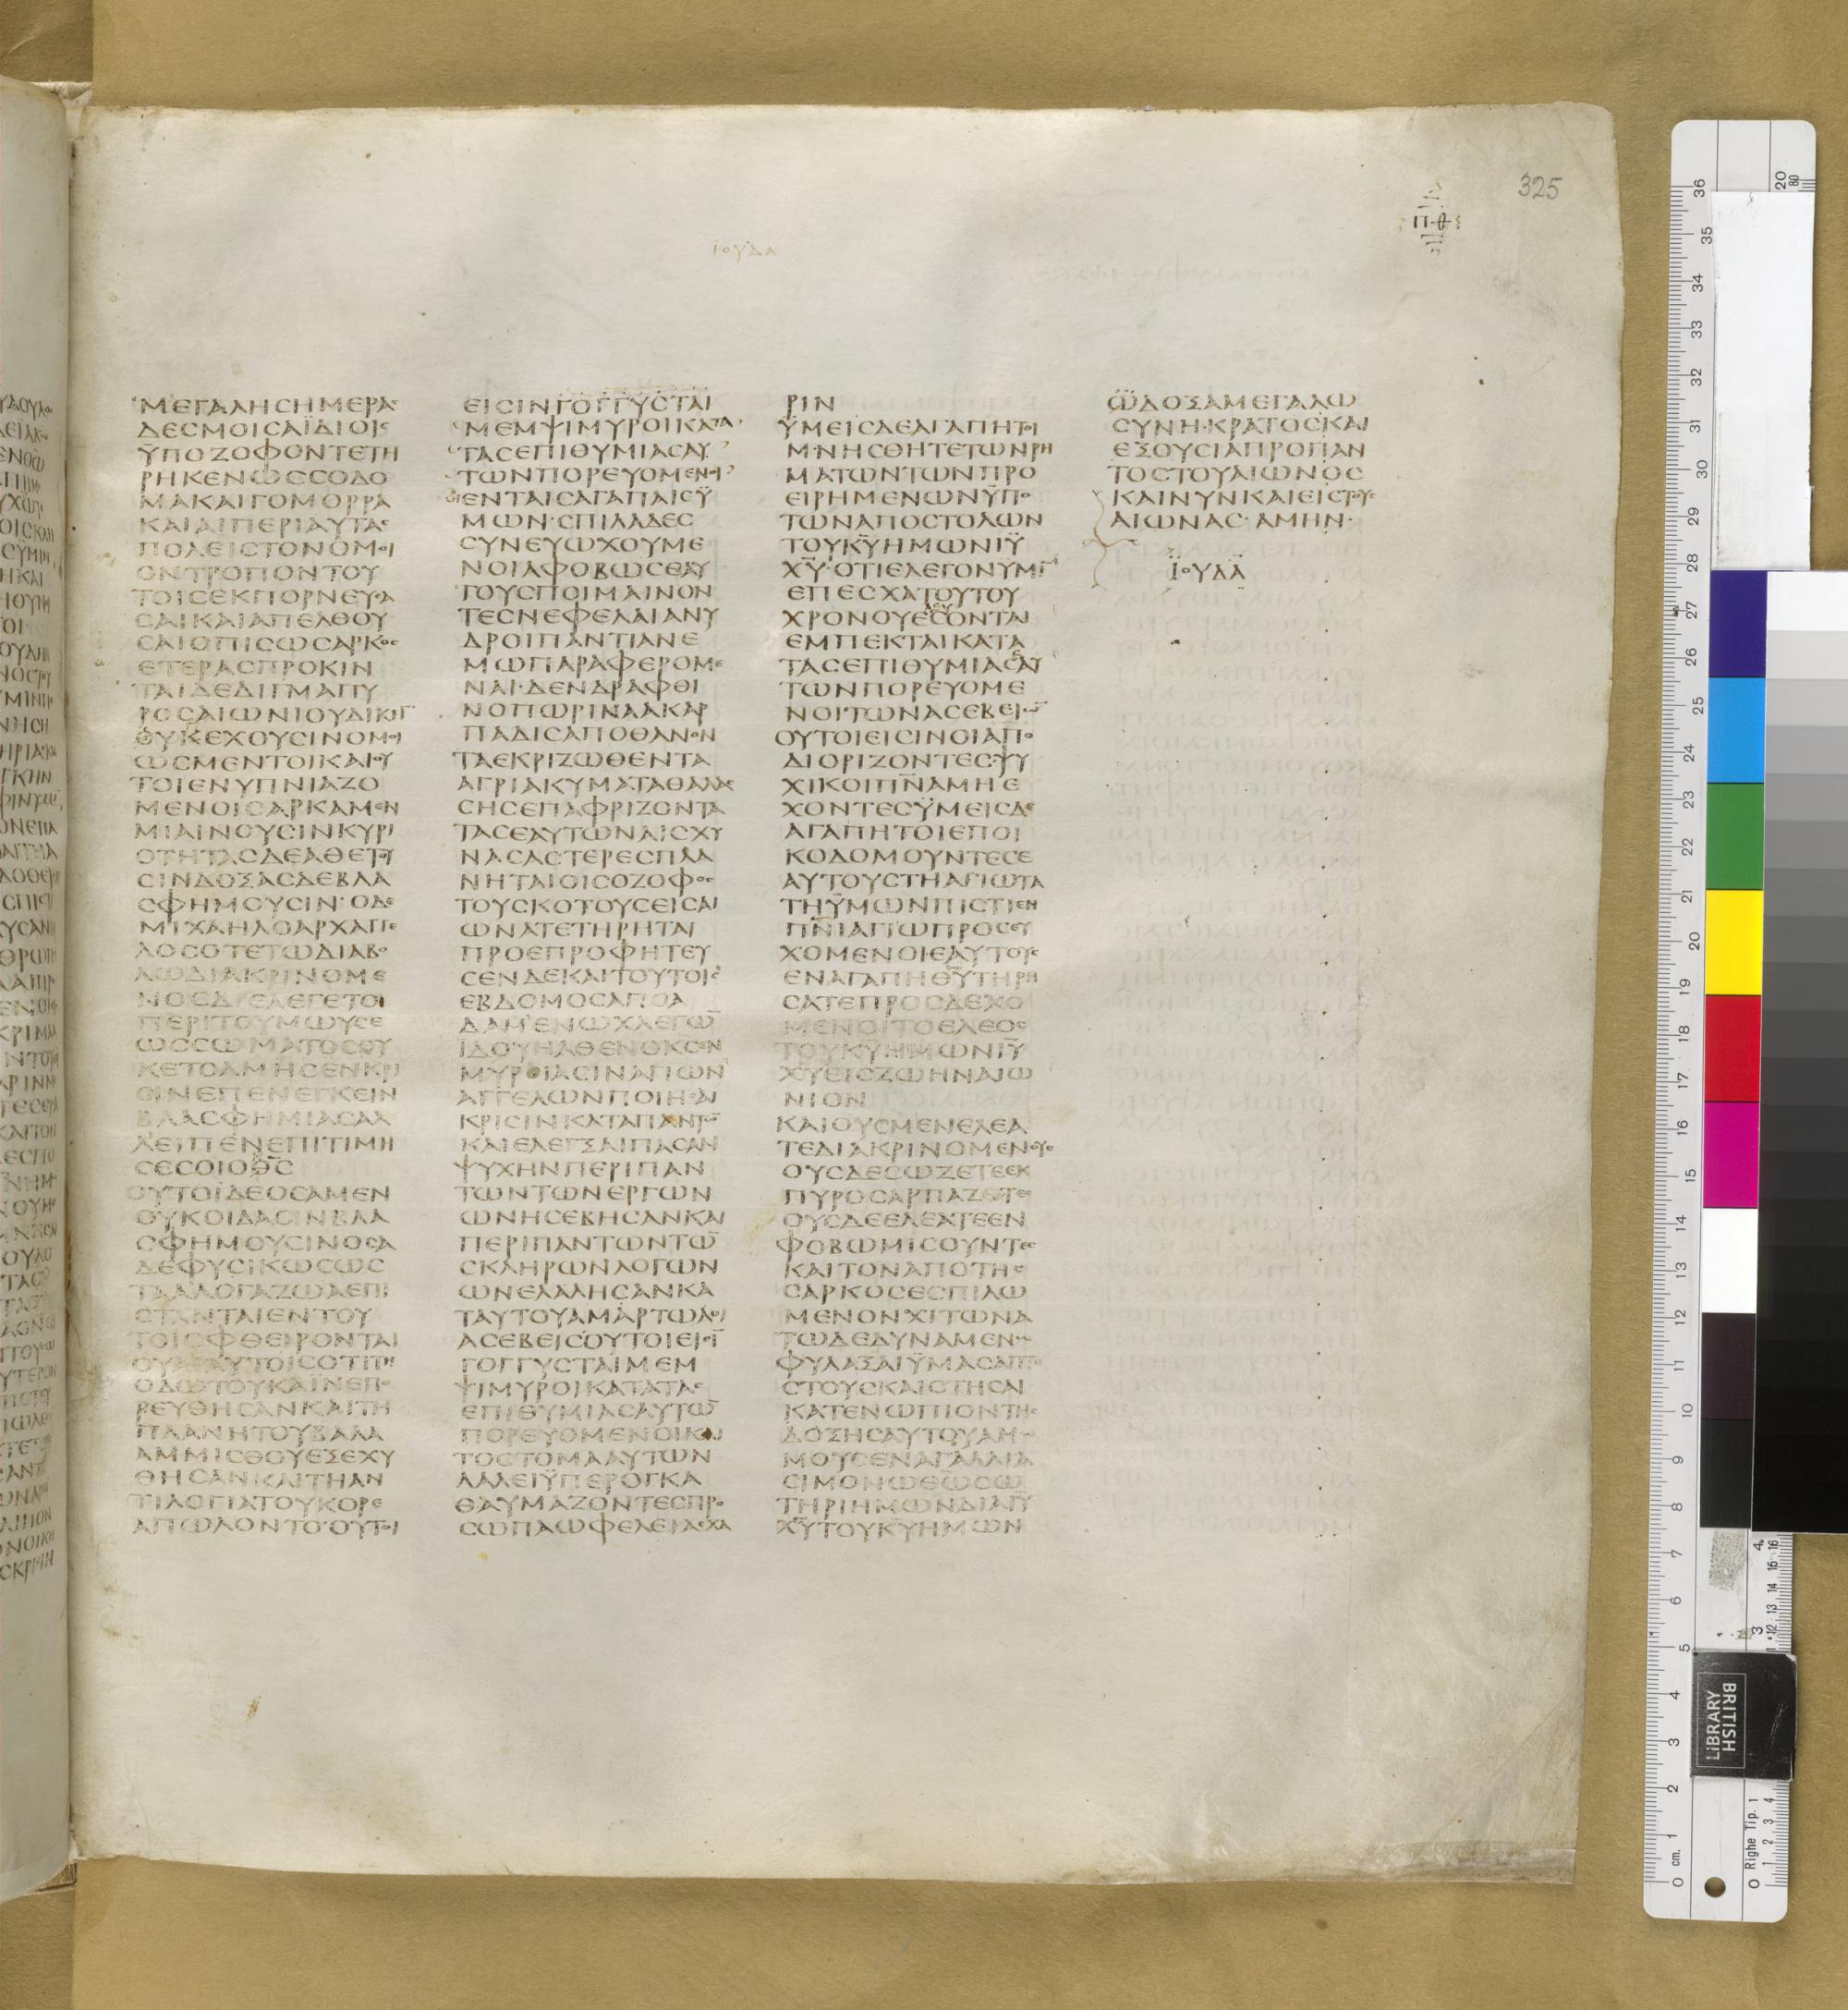 325
ΠΦ
ΙΟΥΔΑ
ΜΕΓΑΛΗϹΗΜΕΡΑϹ
ΔΕϹΜΟΙϹΑΪΔΙΟΙϹ
ΫΠΟΖΟΦΟΝΤΕΤΗ
ΡΗΚΕΝΩϹϹΟΔΟ
ΜΑΚΑΙΓΟΜΟΡΡΑ
ΚΑΙΑΙΠΕΡΙΑΥΤΑϹ
ΠΟΛΕΙϹΤΟΝΟΜΟΙ
ΟΝΤΡΟΠΟΝΤΟΥ
ΤΟΙϹΕΚΠΟΡΝΕΥϹΑ
ϹΑΙΚΑΙΑΠΕΛΘΟΥ
ϹΑΙΟΠΙϹΩϹΑΡΚΟϹ
ΕΤΕΡΑϹΠΡΟΚΙΝ
ΤΑΙΔΕΔΙΓΜΑΠΥ
ΡΟϹΑΙΩΝΙΟΥΔΙΚΗΝ
ΟΥΚΕΧΟΥϹΙΝΟΜΟΙ
ΩϹΜΕΝΤΟΙΚΑΙΟΥ
ΤΟΙΕΝΥΠΝΙΑΖΟ
ΜΕΝΟΙϹΑΡΚΑΜΕΝ
ΜΙΑΙΝΟΥϹΙΝΚΥΡΙ
ΟΤΗΤΑϹΔΕΑΘΕΤΟΥ
ϹΙΝΔΟΞΑϹΔΕΒΛΑ
ϹΦΗΜΟΥϹΙΝ·ΟΔΕ
ΜΙΧΑΗΛΟΑΡΧΑΓΓΕ
ΛΟϹΟΤΕΤΩΔΙΑΒΟ
ΛΩΔΙΑΚΡΙΝΟΜΕ
ΝΟϹΔΙΕΛΕΓΕΤΟ
ΠΕΡΙΤΟΥΜΩΥϹΕ
ΩϹϹΩΜΑΤΟϹΟΥ
ΚΕΤΟΛΜΗϹΕΝΚΡΙ
ϹΙΝΕΠΕΝΕΓΚΕΙΝ
ΒΛΑϹΦΗΜΙΑϹΑΛ
ΛΕΙΠΕΝΕΠΙΤΙΜΗ
ϹΕϹΟΙΟΘϹ
ΟΥΤΟΙΔΕΟϹΑΜΕΝ
ΟΥΚΟΙΔΑϹΙΝΒΛΑ
ϹΦΗΜΟΥϹΙΝΟϹΑ
ΔΕΦΥϹΙΚΩϹΩϹ
ΤΑΑΛΟΓΑΖΩΑΕΠΙ
ϹΤΑΝΤΑΙΕΝΤΟΥ
ΤΟΙϹΦΘΕΙΡΟΝΤΑΙ
ΟΥΑΙΑΥΤΟΙϹΟΤΙΤΗ
ΟΔΩΤΟΥΚΑΪΝΕΠΟ
ΡΕΥΘΗϹΑΝΚΑΙΤΗ
ΠΛΑΝΗΤΟΥΒΑΛΑ
ΑΜΜΙϹΘΟΥΕΞΕΧΥ
ΘΗϹΑΝΚΑΙΤΗΑΝ
ΤΙΛΟΓΙΑΤΟΥΚΟΡΕ
ΑΠΩΛΟΝΤΟ·ΟΥΤΟΙ
ΕΙϹΙΝΓΟΓΓΥϹΤΑΙ
ΜΕΜΨΙΜΥΡΟΙΚΑΤΑ
ΤΑϹΕΠΙΘΥΜΙΑϹΑΥ
ΤΩΝΠΟΡΕΥΟΜΕΝΟΙ
ΟΙΕΝΤΑΙϹΑΓΑΠΑΙϹΫ
ΜΩΝ·ϹΠΙΛΑΔΕϹ
ϹΥΝΕΥΩΧΟΥΜΕ
ΝΟΙΑΦΟΒΩϹΕΑΥ
ΤΟΥϹΠΟΙΜΑΙΝΟΝ
ΤΕϹΝΕΦΕΛΑΙΑΝΥ
ΔΡΟΙΠΑΝΤΙΑΝΕ
ΜΩΠΑΡΑΦΕΡΟΜΕ
ΝΑΙ·ΔΕΝΔΡΑΦΘΙ
ΝΟΠΩΡΙΝΑΑΚΑΡ
ΠΑΔΙϹΑΠΟΘΑΝΟΝ
ΤΑΕΚΡΙΖΩΘΕΝΤΑ
ΑΓΡΙΑΚΥΜΑΤΑΘΑΛΑϹ
ϹΗϹΕΠΑΦΡΙΖΟΝΤΑ
ΤΑϹΕΑΥΤΩΝΑΙϹΧΥ
ΝΑϹΑϹΤΕΡΕϹΠΛΑ
ΝΗΤΑΙΟΙϹΟΖΟΦΟϹ
ΤΟΥϹΚΟΤΟΥϹΕΙϹΑΙ
ΩΝΑΤΕΤΗΡΗΤΑΙ
ΠΡΟΕΠΡΟΦΗΤΕΥ
ϹΕΝΔΕΚΑΙΤΟΥΤΟΙϹ
ΕΒΔΟΜΟϹΑΠΟΑ
ΔΑΜΕΝΩΧΛΕΓΩ̅
ΪΔΟΥΗΛΘΕΝΟΚϹΕΝ
ΜΥΡΙΑϹΙΝΑΓΙΩΝ
ΑΓΓΕΛΩΝΠΟΙΗϹΑΙ
ΚΡΙϹΙΝΚΑΤΑΠΑΝΤΩ̅
ΚΑΙΕΛΕΓΞΑΙΠΑϹΑΝ
ΨΥΧΗΝΠΕΡΙΠΑΝ
ΤΩΝΤΩΝΕΡΓΩΝ
ΩΝΗϹΕΒΗϹΑΝΚΑΙ
ΠΕΡΙΠΑΝΤΩΝΤΩ̅
ϹΚΛΗΡΩΝΛΟΓΩΝ
ΩΝΕΛΑΛΗϹΑΝΚΑ
ΤΑΥΤΟΥΑΜΑΡΤΩΛΟΙ
ΑϹΕΒΕΙϹΟΥΤΟΙΕΙϹΙ̅
ΓΟΓΓΥϹΤΑΙΜΕΜ
ΨΙΜΥΡΟΙΚΑΤΑΤΑϹ
ΕΠΙΘΥΜΙΑϹΑΥΤΩ̅
ΠΟΡΕΥΟΜΕΝΟΙΚΑΙ
ΤΟϹΤΟΜΑΑΥΤΩΝ
ΛΑΛΕΙΫΠΕΡΟΓΚΑ
ΘΑΥΜΑΖΟΝΤΕϹΠΡΟ
ϹΩΠΑΩΦΕΛΕΙΑϹΧΑ
ΡΙΝ
ΫΜΕΙϹΔΕΑΓΑΠΗΤΟΙ
ΜΝΗϹΘΗΤΕΤΩΝΡΗ
ΜΑΤΩΝΤΩΝΠΡΟ
ΕΙΡΗΜΕΝΩΝΫΠΟ
ΤΩΝΑΠΟϹΤΟΛΩΝ
ΤΟΥΚ̅Υ̅ΗΜΩΝΙ̅Υ̅
Χ̅Υ̅·ΟΤΙΕΛΕΓΟΝΥΜΙ̅
ΕΠΕϹΧΑΤΟΥΤΟΥ
ΧΡΟΝΟΥΕϹΟΝΤΑΙ
ΕΜΠΕΚΤΑΙΚΑΤΑ
ΤΑϹΕΠΙΘΥΜΙΑϹΑΥ
ΤΩΝΠΟΡΕΥΟΜΕ
ΝΟΙΤΩΝΑϹΕΒΕΙΩ̅
ΟΥΤΟΙΕΙϹΙΝΟΙΑΠΟ
ΔΙΟΡΙΖΟΝΤΕϹΨΥ
ΧΙΚΟΙΠ̅Ν̅ΑΜΗΕ
ΧΟΝΤΕϹΫΜΕΙϹΔΕ
ΑΓΑΠΗΤΟΙΕΠΟΙ
ΚΟΔΟΜΟΥΝΤΕϹΕ
ΑΥΤΟΥϹΤΗΑΓΙΩΤΑ
ΤΗΫΜΩΝΠΙϹΤΙΕΝ
Π̅Ν̅ΙΑΓΙΩΠΡΟϹΕΥ
ΧΟΜΕΝΟΙΕΑΥΤΟΥϹ
ΕΝΑΓΑΠΗΘ̅Υ̅ΤΗΡΗ
ϹΑΤΕΠΡΟϹΔΕΧΟ
ΜΕΝΟΙΤΟΕΛΕΟϹ
ΤΟΥΚ̅Υ̅ΗΜΩΝΙ̅Υ̅
Χ̅Υ̅ΕΙϹΖΩΗΝΑΙΩ
ΝΙΟΝ
ΚΑΙΟΥϹΜΕΝΕΛΕΑ
ΤΕΔΙΑΚΡΙΝΟΜΕΝΟΥϹ
ΟΥϹΔΕϹΩΖΕΤΕΕΚ
ΠΥΡΟϹΑΡΠΑΖΟΝΤΕϹ
ΟΥϹΔΕΕΛΕΑΤΕΕΝ
ΦΟΒΩΜΙϹΟΥΝΤΕϹ
ΚΑΙΤΟΝΑΠΟΤΗϹ
ϹΑΡΚΟϹΕϹΠΙΛΩ
ΜΕΝΟΝΧΙΤΩΝΑ
ΤΩΔΕΔΥΝΑΜΕΝΩ
ΦΥΛΑΞΑΙΫΜΑϹΑΠΤΑΙ
ϹΤΟΥϹΚΑΙϹΤΗϹΑΙ
ΚΑΤΕΝΩΠΙΟΝΤΗϹ
ΔΟΞΗϹΑΥΤΟΥΑΜΩ
ΜΟΥϹΕΝΑΓΑΛΛΙΑ
ϹΙΜΟΝΩΘ̅Ω̅ϹΩ
ΤΗΡΙΗΜΩΝΔΙΑΙ̅Υ̅
Χ̅Υ̅ΤΟΥΚ̅Υ̅ΗΜΩΝ
ΩΔΟΞΑΜΕΓΑΛΩ
ϹΥΝΗ·ΚΡΑΤΟϹΚΑΙ
ΕΞΟΥϹΙΑΠΡΟΠΑΝ
ΤΟϹΤΟΥΑΙΩΝΟϹ
ΚΑΙΝΥΝΚΑΙΕΙϹΤΟΥϹ
ΑΙΩΝΑϹ·ΑΜΗΝ·
ΪΟΥΔΑ
BRITISH LIBRARY